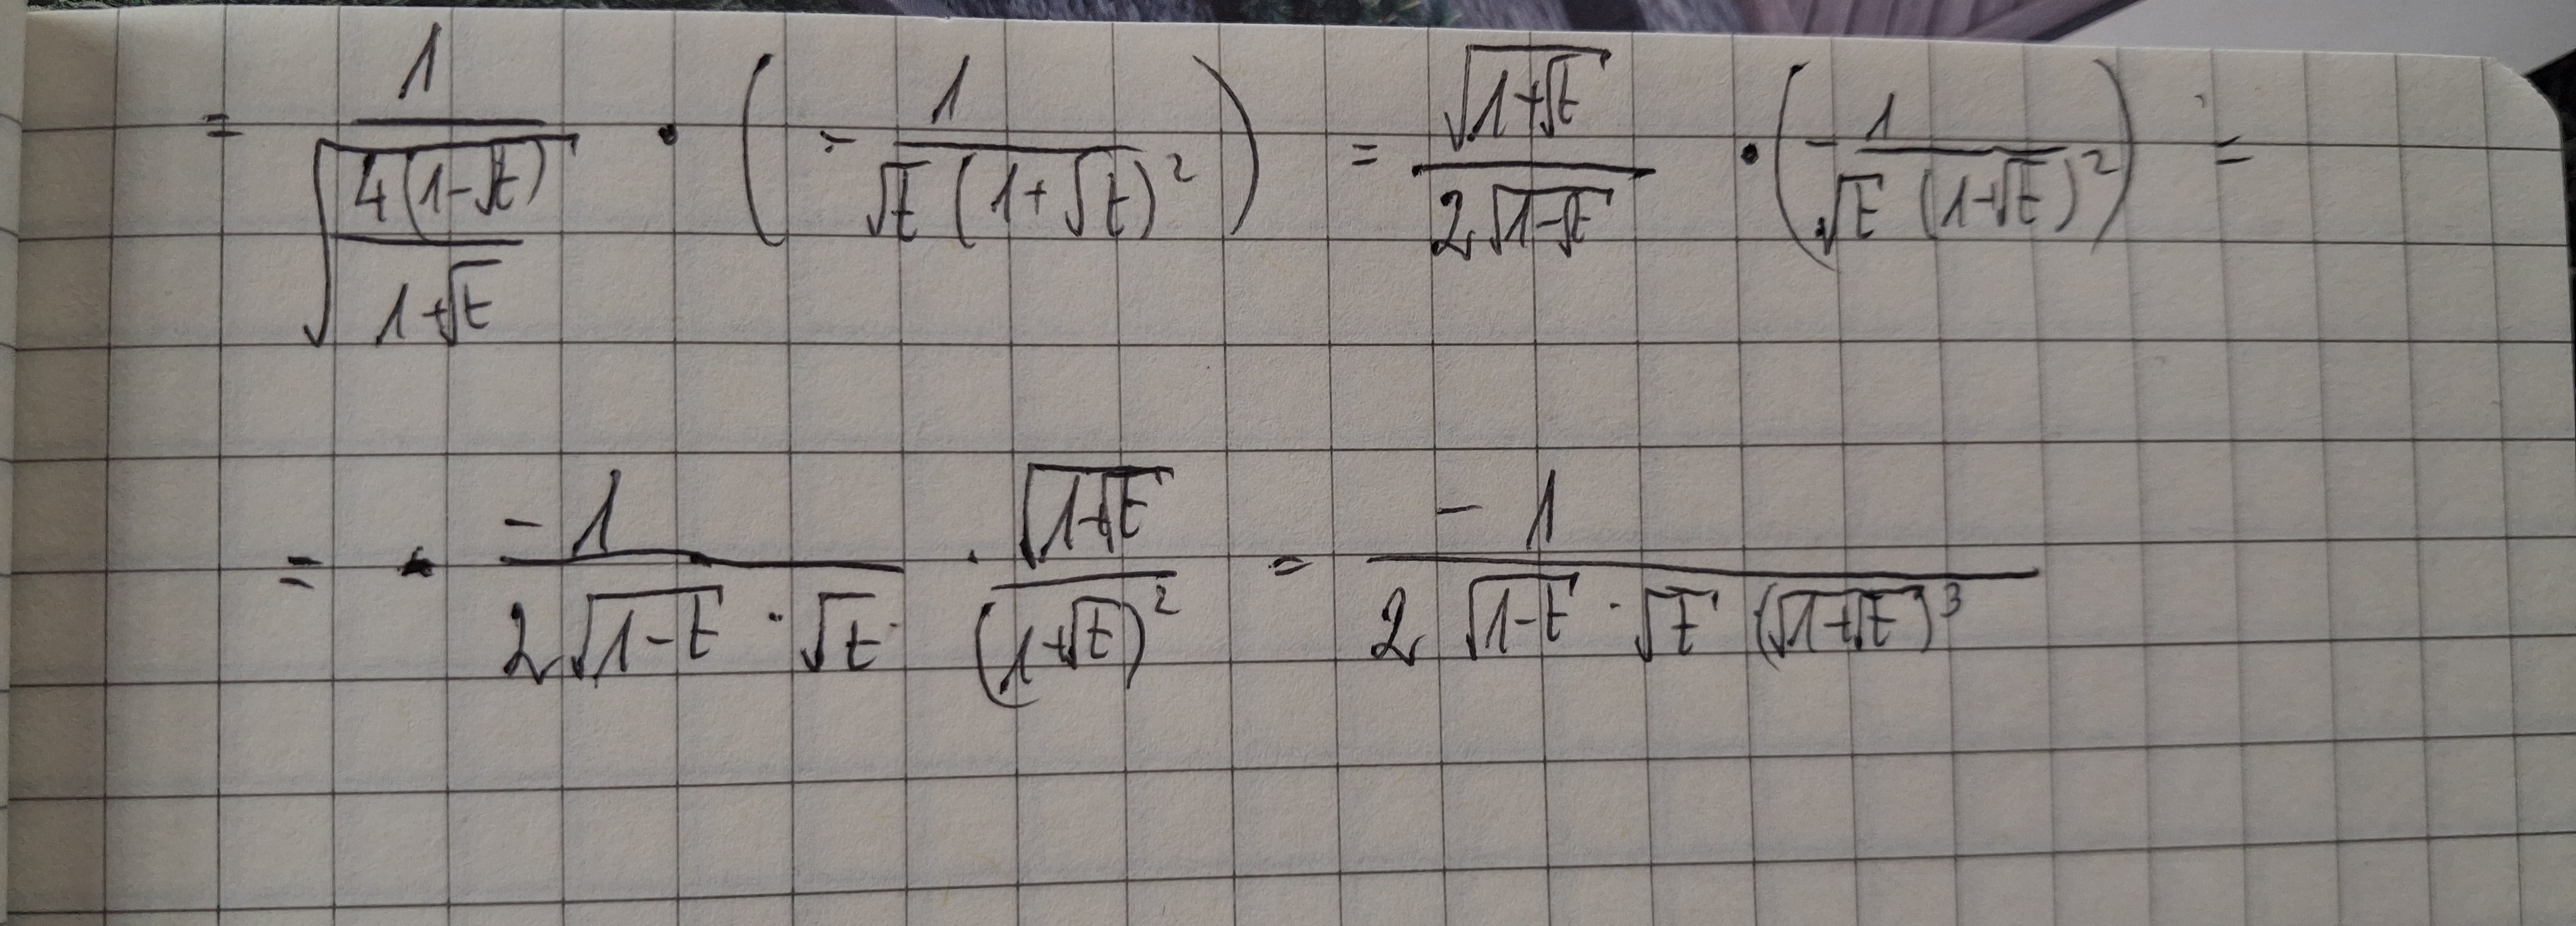 = 1/√(4(1-√t)/(1+√t)) · (- 1/(√t (1+√t)²)) = √(1+√t)/(2√(1-√t)) · (- 1/(√t (1+√t)²)) =
= -1/(2√(1-t) · √t) · √(1+√t)/(1+√t)² = -1/(2√(1-t) · √t (√(1+√t))³)